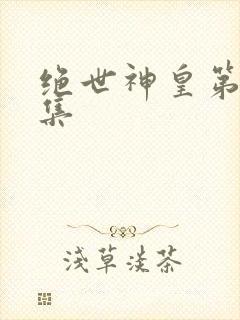 绝世神皇第
集
浅草淡茶